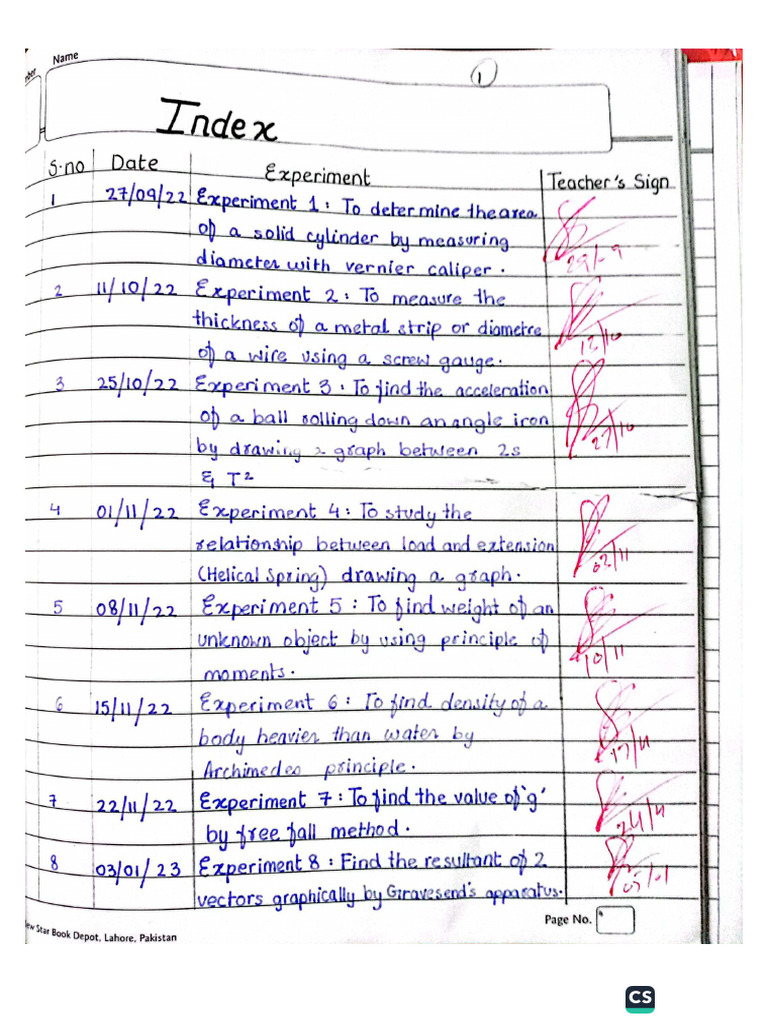 Name
1
Index
S.no Date Experiment Teacher's Sign
1 27/09/22 Experiment 1: To determine the area
of a solid cylinder by measuring
diameter with vernier caliper.
29/-9
2 11/10/22 Experiment 2: To measure the
thickness of a metal strip or diametre
of a wire using a screw gauge.
12/10
3 25/10/22 Experiment 3: To find the acceleration
of a ball rolling down an angle iron
by drawing a graph between 2s
& T²
27/10
4 01/11/22 Experiment 4: To study the
relationship between load and extension
(Helical Spring) drawing a graph.
02/11
5 08/11/22 Experiment 5: To find weight of an
unknown object by using principle of
moments.
10/11
6 15/11/22 Experiment 6: To find density of a
body heavier than water by
Archimedes principle.
17/11
7 22/11/22 Experiment 7: To find the value of 'g'
by free fall method.
24/11
8 03/01/23 Experiment 8: Find the resultant of 2
vectors graphically by Gravesend's apparatus.
05/-1
Page No.
Star Book Depot, Lahore, Pakistan
CS